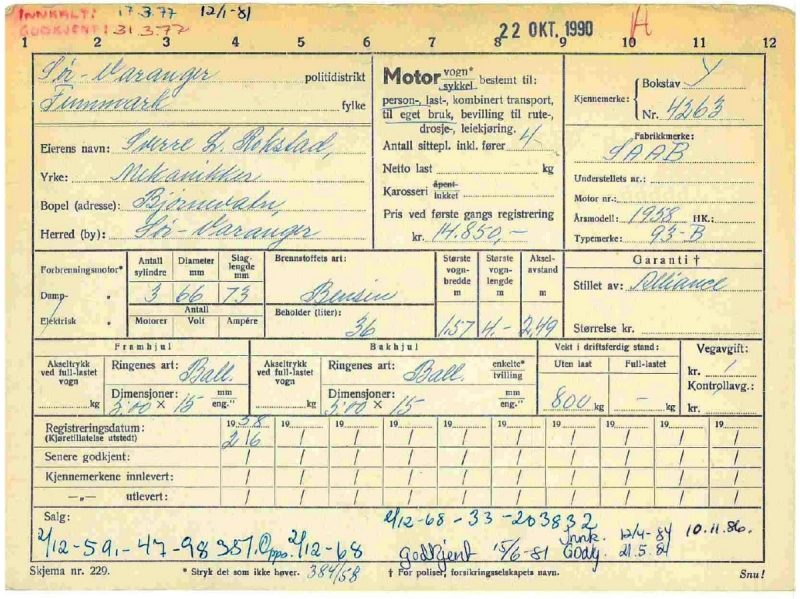 INNKALT: 17.3.77 12/1-81
GODKJENT: 31.3.77
22 OKT. 1990 A
1 2 3 4 5 6 7 8 9 10 11 12
Sør-Varanger politidistrikt
Finnmark fylke
Eierens navn: Sverre L. Rokstad,
Yrke: Mekanikker
Bopel (adresse): Bjørnevatn,
Herred (by): Sør-Varanger
Motor vogn* sykkel bestemt til:
person-, last-, kombinert transport,
til eget bruk, bevilling til rute-,
drosje-, leiekjøring.
Antall sittepl. inkl. fører 4
Netto last kg
Karosseri åpent lukket
Pris ved første gangs registrering
kr. 14.850,-
Kjennemerke: Bokstav Y
Nr. 4263
Fabrikkmerke:
SAAB
Understellets nr.:
Motor nr.:
Årsmodell: 1958 HK.:
Typemerke: 93-B
Forbrenningsmotor*
Damp- /
Elektrisk /
Antall sylindre Diameter mm Slaglengde mm
3 66 73
Antall
Motorer Volt Ampére
Brennstoffets art:
Bensin
Beholder (liter):
36
Største vognbredde m Største vognlengde m Akselavstand m
1.57 4.- 2.49
Garanti †
Stillet av: Alliance
Størrelse kr.
Framhjul
Akseltrykk ved full-lastet vogn
kg
Ringenes art: Ball.
Dimensjoner: mm eng."
5.00 × 15
Bakhjul
Akseltrykk ved full-lastet vogn
kg
Ringenes art: Ball. enkelte* tvilling
Dimensjoner: mm eng."
5.00 × 15
Vekt i driftsferdig stand:
Uten last Full-lastet
800 kg - kg
Vegavgift:
kr. /
Kontrollavg.:
kr. /
Registreringsdatum: 1958 19 19 19 19 19 19 19 19
(Kjøretillatelse utstedt) 2/6 / / / / / / / /
Senere godkjent: / / / / / / / / /
Kjennemerkene innlevert: / / / / / / / / /
—„— utlevert: / / / / / / / / /
Salg:
2/12-68-33-203832
2/12-59,-47-98387. Opps. 2/12-68
godkjent 15/6-81
Innk. 12/4-84 10.11.86.
Godkj. 21.5.84
Skjema nr. 229. * Stryk det som ikke høver. 384/58 † For poliser, forsikringsselskapets navn. Snu!